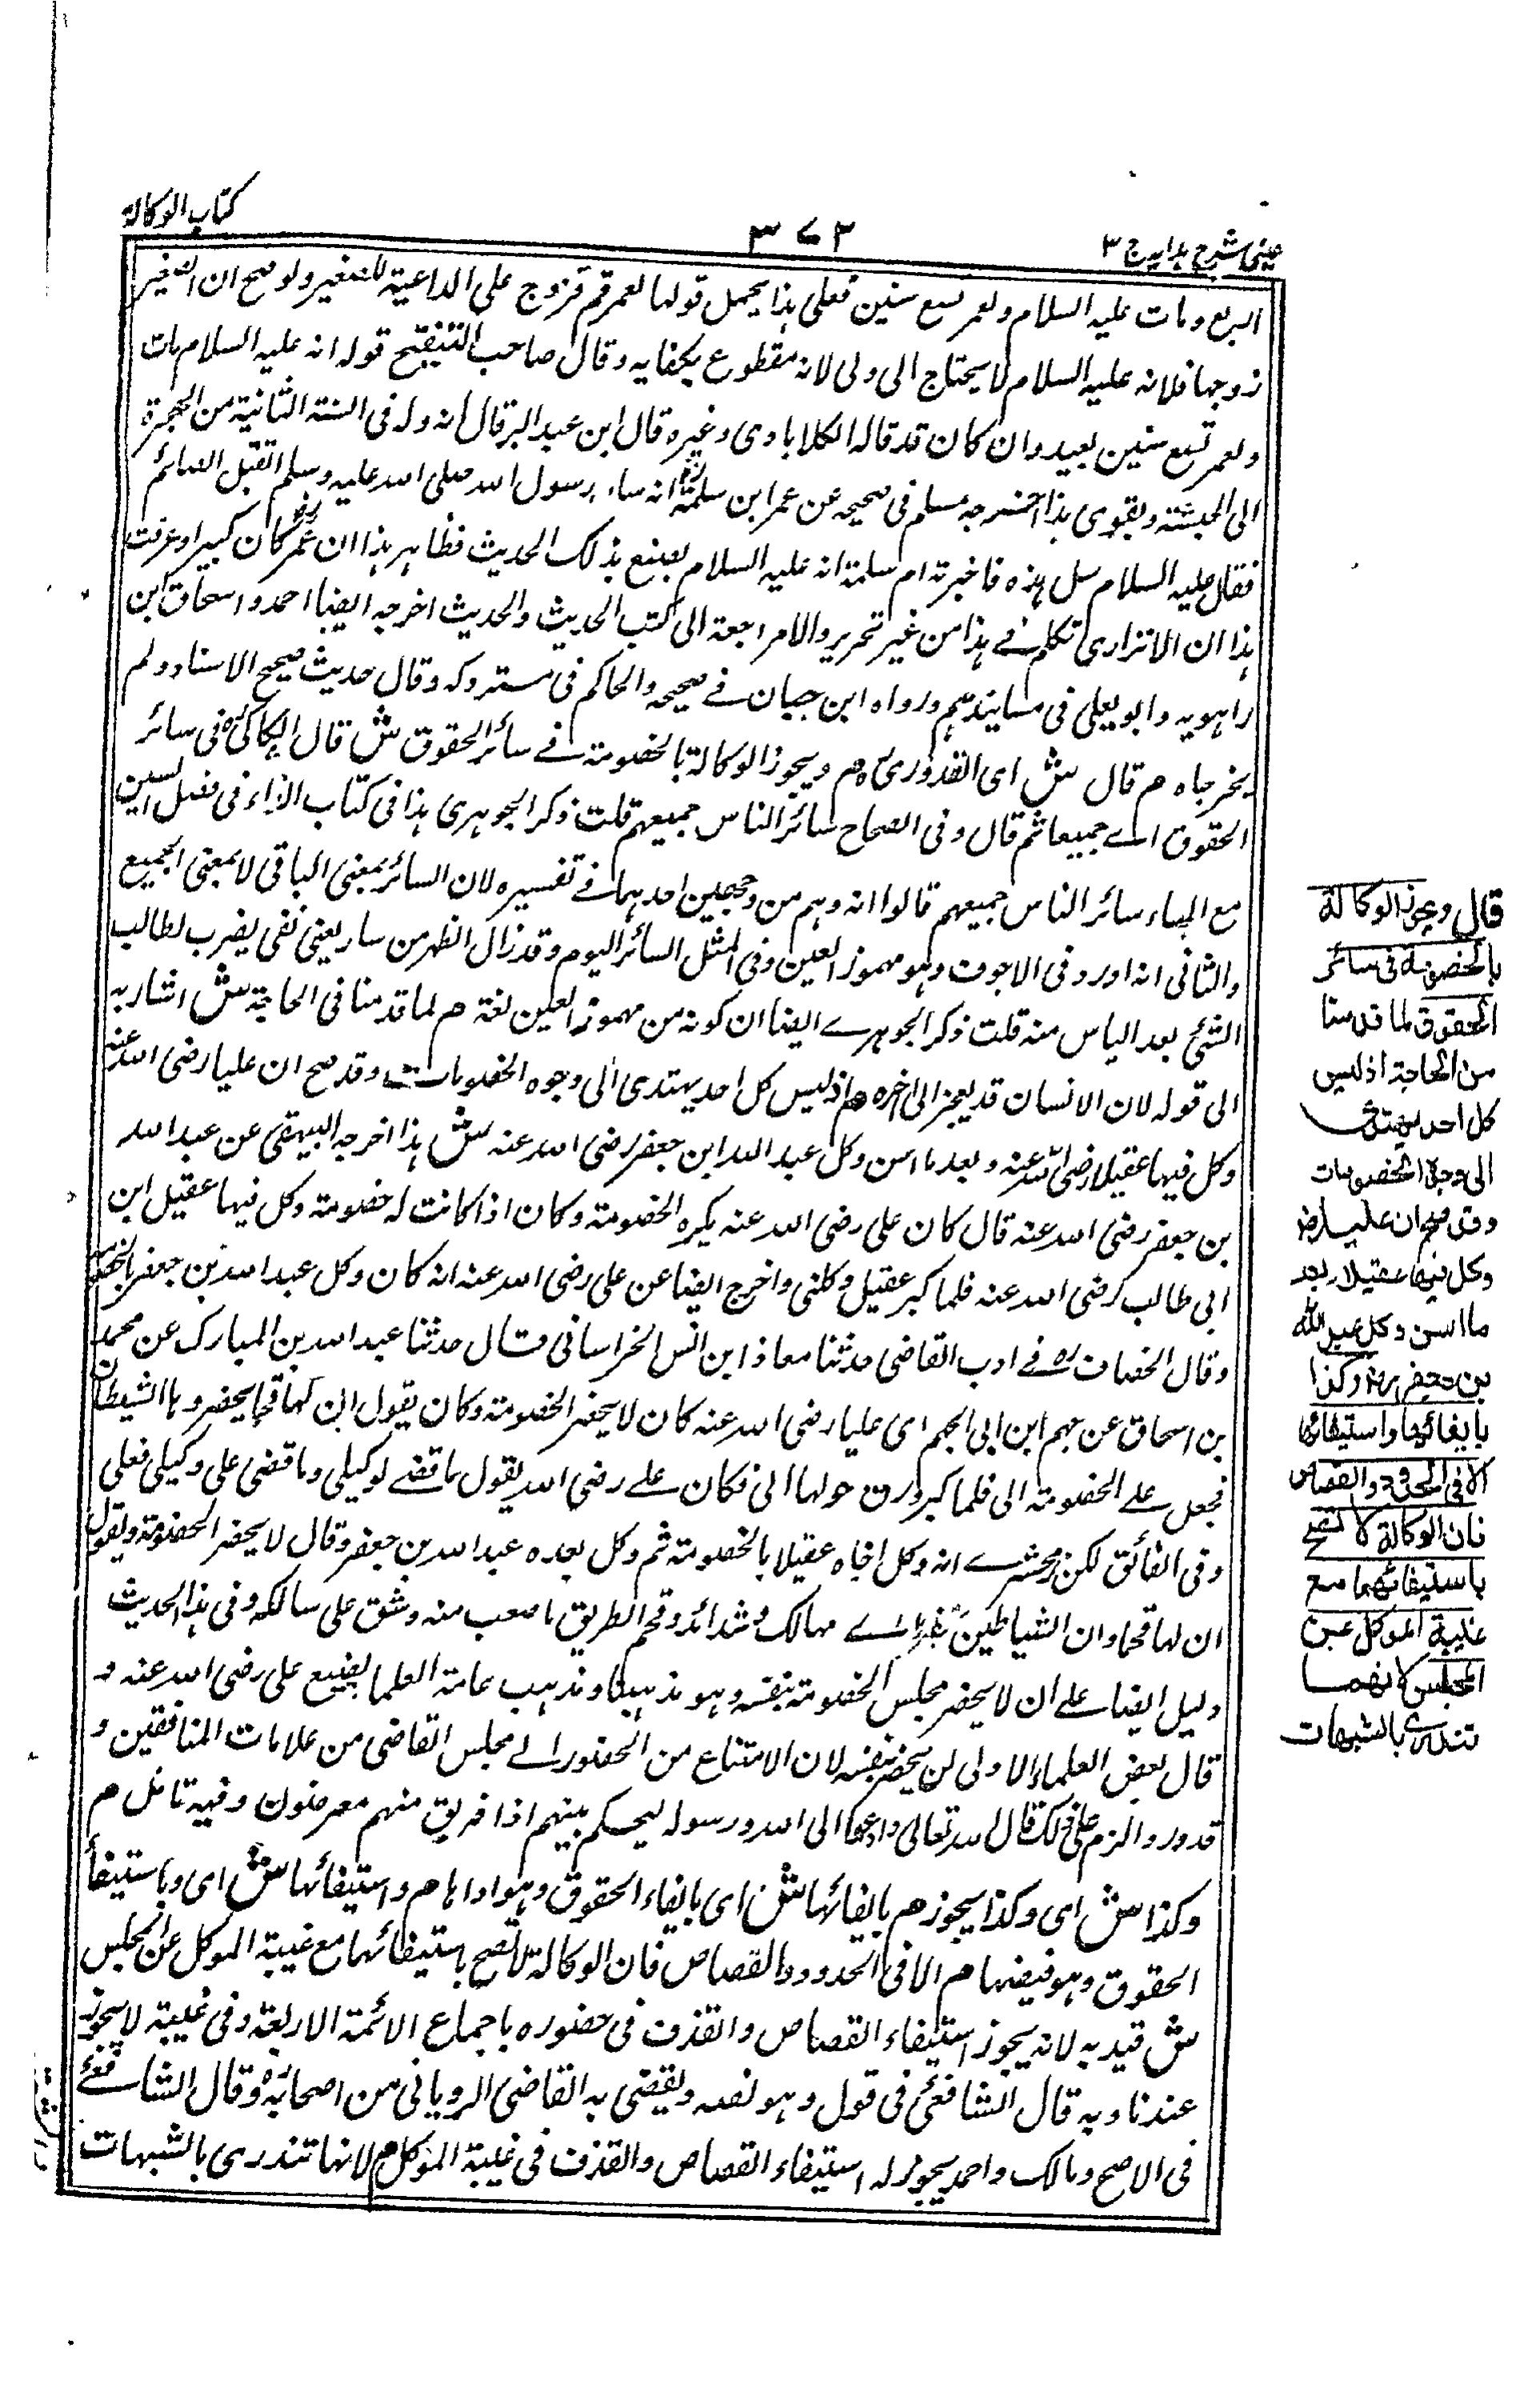 عينى شرح هدايه ج ٣
٣٧٣
كتاب الوكالة
اربع ومات عليه السلام ولعمر تسع سنين فعلى هذا يحمل قولها لعمر قم فزوج على الداعية للصغير ولو صح ان الصغير
زوجها فلانه عليه السلام لا يحتاج الى ولى لانه مقطوع بكفايه وقال صاحب التنقيح قوله انه عليه السلام مات
ولعمر تسع سنين بعيد وان كان قد قاله الكلاباوى وغيره قال ابن عبد البر قال انه ولد فى السنة الثانية من الهجرة
الى الحبشة ويقوى هذا اخرجه مسلم فى صحيحه عن عمر ابن سلمة رض انه سأل رسول الله صلى الله عليه وسلم اتقبل الصائم
فقال عليه السلام سل هذه فاخبرته ام سلمة انه عليه السلام يصنع ذلك الحديث فظاهر هذا ان عمر رض كان كبيرا وعرفت
هذا ان الاترازى تكلم فى هذا من غير تحرير والامراجعة الى كتب الحديث والحديث اخرجه ايضا احمد واسحاق ابن
راهويه وابو يعلى فى مسانيدهم ورواه ابن حبان فے صحيحه والحاكم فى مستدركه وقال حديث صحيح الاسناد ولم
يخرجاه م قال ش اى القدورى رہ م ويجوز الوكالة بالخصومة فے سائر الحقوق ش قال الكاكى رہ فى سائر
الحقوق اے جميعا ثم قال وفى الصحاح سائر الناس جميعهم قلت ذكر الجوهرى هذا فى كتاب الراء فى فصل السين
مع الهاء سائر الناس جميعهم قالوا انه وهم من وجهين احدهما فے تفسيره لان السائر بمعنى الباقى لا بمعنى الجميع
والثانى انه اورد فى الاجوف وهو مهموز العين وفى المثل السائر اليوم وقد زال الظهر من سار يعنى نفى يضرب لطالب
الشئ بعد الياس منه قلت ذكر الجوهرے ايضا ان كونه من مهموز العين لغة م لما قدمنا فى الحاجة ش اشار به
الى قوله لان الانسان قد يعجز الى اخره م اذ ليس كل احد يهتدى الى وجوه الخصومات وقد صح ان عليا رضى الله عنه
وكل فيها عقيلا رضى الله عنه وبعد ما اسن وكل عبد الله ابن جعفر رضى الله عنه ش هذا اخرجه البيهقى عن عبد الله
بن جعفر رضى الله عنه قال كان على رضى الله عنه يكره الخصومة وكان اذا كانت له خصومة وكل فيها عقيل ابن
ابى طالب رضى الله عنه فلما كبر عقيل وكلنى واخرج ايضا عن على رضى الله عنه انه كان وكل عبد الله بن جعفر بالخصومة
وقال الخصاف رہ فے ادب القاضى حدثنا معاذ ابن انس الخراسانى قال حدثنا عبد الله بن المبارك عن محمد
بن اسحاق عن جهم ابن ابى الجهم اى عليا رضى الله عنه كان لا يحضر الخصومة وكان يقول ان لها قحما يحضروها الشيطان
فجعل على الخصومة الى فلما كبر ورق حولها الى فكان على رضى الله يقول ما قضے لوكيلى وما قضى على وكيلى فعلى
وفى الفائق لكن زمخشرے انه وكل اخاه عقيلا بالخصومة ثم وكل بعده عبد الله بن جعفر وقال لا يحضر الخصومة ويقول
ان لها قحما وان الشياطين اے مهالك وشدائد وقحم الطريق ما صعب منه وشق على سالكه وفى هذا الحديث
دليل ايضا على ان لا يحضر مجلس الخصومة بنفسه وهو مذهبنا ومذهب عامة العلما لصنيع على رضى الله عنه و
قال بعض العلماء الاولى لن يحضر بنفسه لان الامتناع من الحضور الے مجلس القاضى من علامات المنافقين و
قد ورد الزم على ذلك قال الله تعالى واذا دعوا الى الله ورسوله ليحكم بينهم اذا فريق منهم معرضون وفيه تامل م
وكذا ش اى وكذا يجوز م بايفائها ش اى بايفاء الحقوق وهو اداها م واستيفائها ش اى وباستيفاء
الحقوق وهو قبضها م الا فى الحدود والقصاص فان الوكالة لا تصح باستيفائها مع غيبة الموكل عن المجلس
ش قيد به لانه يجوز استيفاء القصاص والقذف فى حضوره باجماع الائمة الاربعة وفى غيبة لا يجوز
عندنا وبه قال الشافعى رہ فى قول وهو نصه ويقضى به القاضى الرويانى من اصحابه رہ وقال الشافعے
فى الاصح ومالك واحمد يجوز له استيفاء القصاص والقذف فى غيبة الموكل م لانها تندرى بالشبهات
قال ويجوز الوكالة
بالخصومة فى سائر
الحقوق لما قدمنا
من الحاجة اذ ليس
كل احد يهتدى
الى وجوه الخصومات
وقد صح ان عليا رض
وكل فيها عقيلا وبعد
ما اسن وكل عبد الله
بن جعفر رض وكذا
بايفائها واستيفائها
الا فى الحدود والقصاص
فان الوكالة لا تصح
باستيفائهما مع
غيبة الموكل عن
المجلس لانهما
تندرى بالشبهات